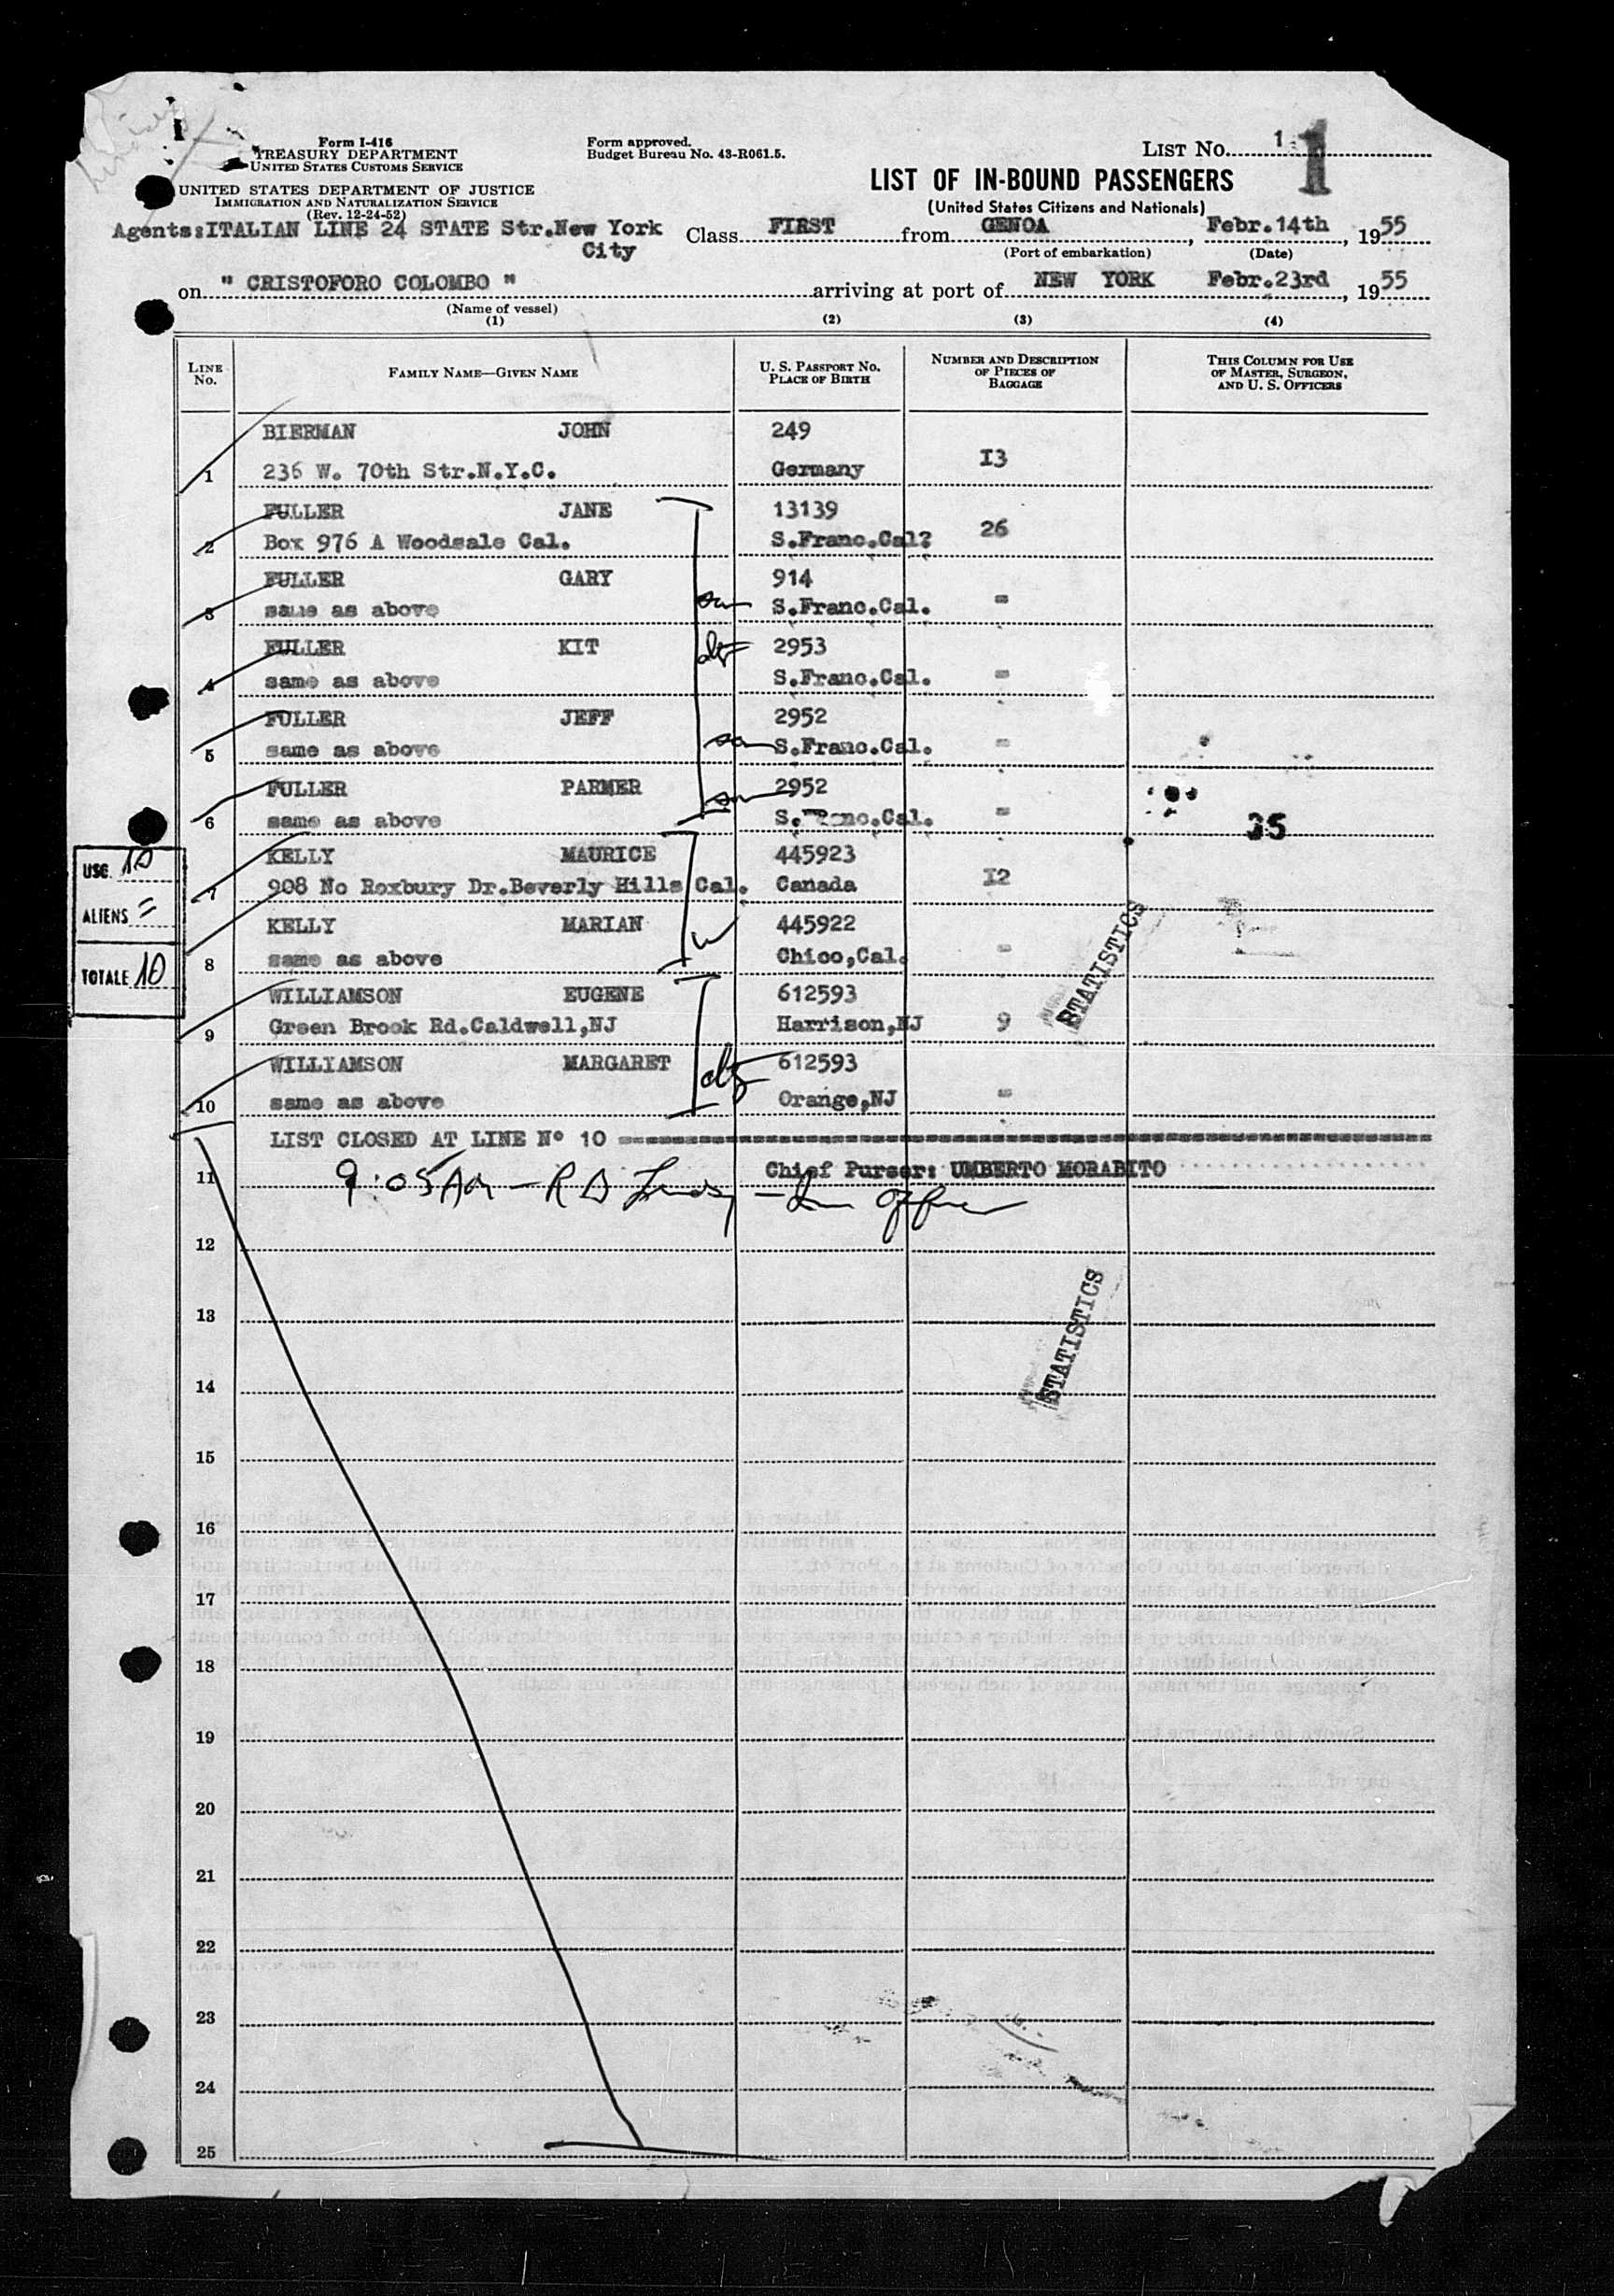 Form I-416
TREASURY DEPARTMENT
UNITED STATES CUSTOMS SERVICE
UNITED STATES DEPARTMENT OF JUSTICE
IMMIGRATION AND NATURALIZATION SERVICE
(Rev. 12-24-52)
Form approved.
Budget Bureau No. 43-R061.5.
LIST NO. 1 1
LIST OF IN-BOUND PASSENGERS
(United States Citizens and Nationals)
Agents:ITALIAN LINE 24 STATE Str.New York City
Class FIRST from GENOA, Febr.14th, 1955
(Port of embarkation) (Date)
on " CRISTOFORO COLOMBO " arriving at port of NEW YORK Febr.23rd, 1955
(Name of vessel)
(1) (2) (3) (4)
LINE NO. FAMILY NAME—GIVEN NAME U. S. PASSPORT NO. PLACE OF BIRTH NUMBER AND DESCRIPTION OF PIECES OF BAGGAGE THIS COLUMN FOR USE OF MASTER, SURGEON, AND U. S. OFFICERS
BIERMAN JOHN 249
1 236 W. 70th Str.N.Y.C. Germany I3
FULLER JANE 13139
2 Box 976 A Woodsale Cal. S.Franc.Cal? 26
FULLER GARY 914
3 same as above son S.Franc.Cal. "
FULLER KIT 2953
4 same as above S.Franc.Cal. "
FULLER JEFF 2952
5 same as above son S.Franc.Cal. "
FULLER PARMER 2952
6 same as above son S.Franc.Cal. "
35
KELLY MAURICE 445923
7 908 No Roxbury Dr.Beverly Hills Cal. Canada I2
KELLY MARIAN 445922
8 same as above w Chico,Cal. "
WILLIAMSON EUGENE 612593
9 Green Brook Rd.Caldwell,NJ Harrison,NJ 9
WILLIAMSON MARGARET 612593
10 same as above Orange,NJ "
USC. 10
ALIENS =
TOTALE 10
STATISTICS
LIST CLOSED AT LINE N° 10
Chief Purser: UMBERTO MORABITO
11 9:05 AM - R D - Im Officer
12
STATISTICS
13
14
15
16
17
18
19
20
21
22
23
24
25